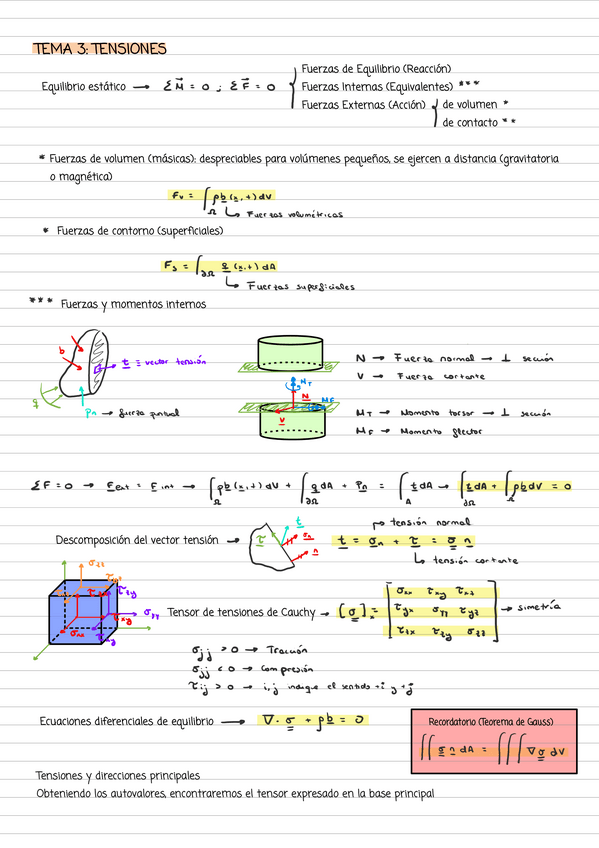 TEMA 3: TENSIONES
Fuerzas de Equilibrio (Reacción)
Equilibrio estático → Σ M⃗ = 0 ; Σ F⃗ = 0
Fuerzas Internas (Equivalentes) ***
Fuerzas Externas (Acción)
de volumen *
de contacto **
* Fuerzas de volumen (másicas): despreciables para volúmenes pequeños, se ejercen a distancia (gravitatoria
o magnética)
Fv = ∫Ω ρb (x, t) dV
↳ Fuerzas volumétricas
* Fuerzas de contorno (superficiales)
Fs = ∫∂Ω q (x, t) dA
↳ Fuerzas superficiales
*** Fuerzas y momentos internos
b
t ≡ vector tensión
q
Pn → fuerza puntual
MT
N
MF
V
N → Fuerza normal → ⊥ sección
V → Fuerza cortante
MT → Momento torsor → ⊥ sección
MF → Momento flector
ΣF = 0 → Fext = Fint → ∫Ω ρb (x, t) dV + ∫∂Ω q dA + Pn = ∫A t dA → ∫∂Ω t dA + ∫Ω ρb dV = 0
Descomposición del vector tensión →
τ
t
σn
n
tensión normal
t = σn + τ = σ n
↳ tensión cortante
σzz
τzy
σyy
τxy
σxx
Tensor de tensiones de Cauchy → [σ]x =
σxx τxy τxz
τyx σyy τyz
τzx τzy σzz
→ simetría
σjj > 0 → Tracción
σjj < 0 → Compresión
τij > 0 → i, j indique el sentido +i y +j
Ecuaciones diferenciales de equilibrio → ∇ · σ + ρb = 0
Recordatorio (Teorema de Gauss)
∫∫ σ n dA = ∫∫∫ ∇σ dV
Tensiones y direcciones principales
Obteniendo los autovalores, encontraremos el tensor expresado en la base principal